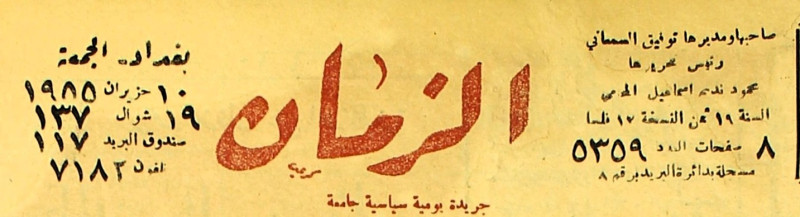 صاحبها ومديرها توفيق السمعاني
رئيس تحريرها
محمود نديم اسماعيل المحامي
السنة ١٩ ثمن النسخة ١٢ فلسا
٨ صفحات العدد ٥٣٥٩
مسجلة بدائرة البريد برقم ٨
الزمان
جريدة يومية سياسية جامعة
بغداد الجمعة
١٠ حزيران ١٩٥٥
١٩ شوال ١٣٧
صندوق البريد ١١٧
تلفون ٧١٨٢